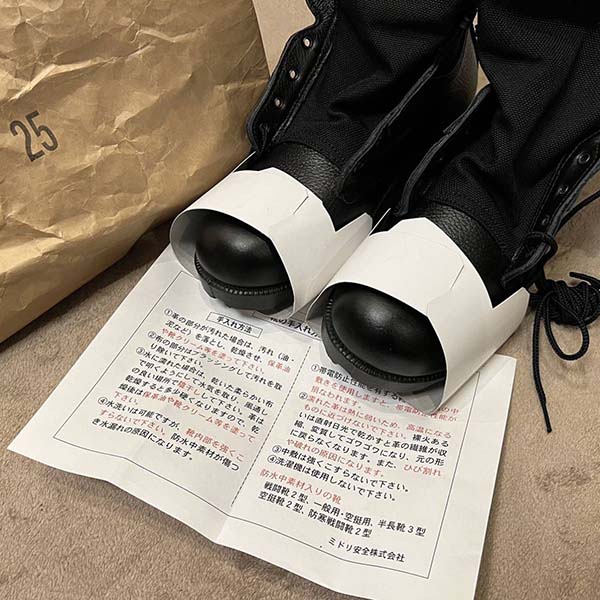 25
手入れ方法
の手入れ
①革の部分が汚れた場合は、汚れ（油・
泥など）を落とし、乾燥させ、保革油
や靴クリーム等を塗って下さい。
②布の部分はブラッシングして汚れを取
り除いて下さい。
③水に濡れた場合は、乾いた柔らかい布
で叩くようにして水気を取り、風通し
の良い場所で陰干しして下さい。革は
乾燥すると多少硬くなりますので、乾
燥後は保革油や靴クリーム等を塗って
下さい。
④水洗いは可能ですが、靴内部を強くこ
すらないで下さい。防水中素材が傷つ
き水漏れの原因になります。
①帯電防止性能を有する
敷きを使用しますと、帯電防止性能が
損なわれます
②濡れた革は熱に弱いため、高温になる
ものに近づけないで下さい。裸火ある
いは直射日光で乾かすと革の繊維が収
縮、変質してゴワゴワになり、元の形
に戻らなくなります。また、ひび割れ
や破れの原因になります。
③中敷は強くこすらないで下さい。
④洗濯機は使用しないで下さい。
防水中素材入りの靴
戦闘靴２型、一般用・空挺用、半長靴３型
空挺靴２型、防寒戦闘靴２型
ミドリ安全株式会社